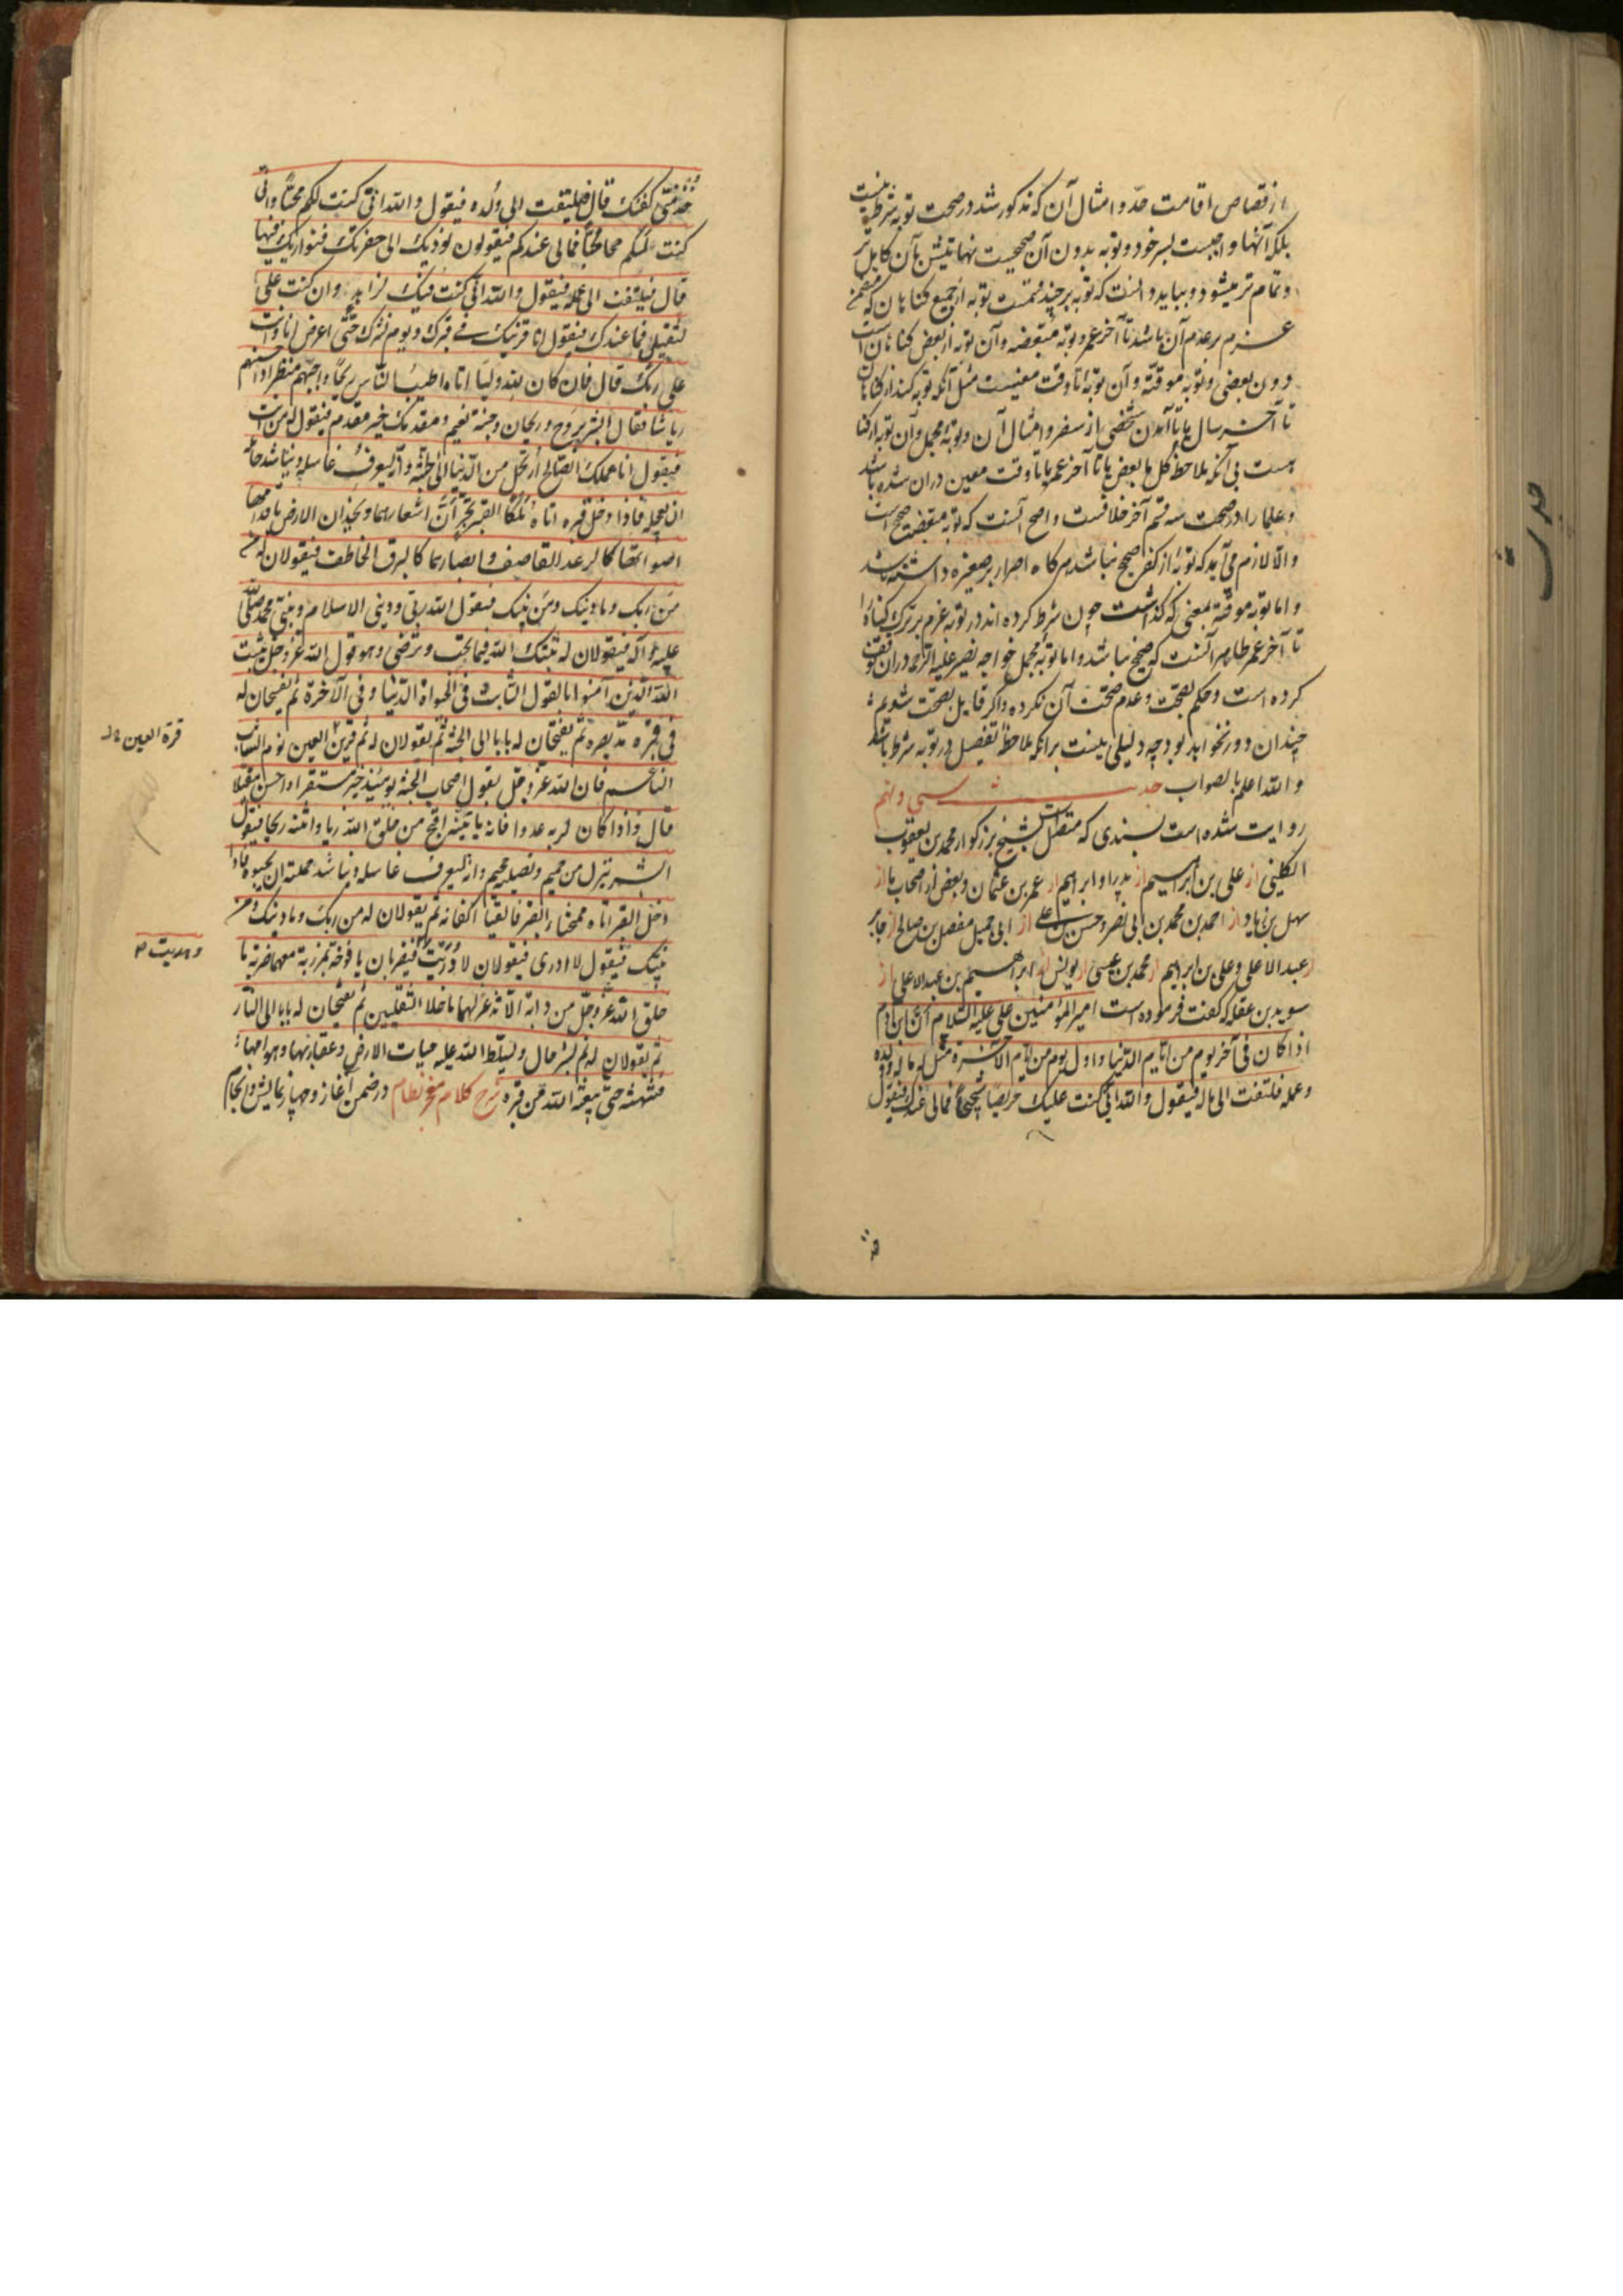 از قصاص و اقامت حدّ و امثال آن که مذکور شد در صحت توبه شرط نیست
بلکه آنها واجبیست بسر خود و توبه بدون آن صحیحست نهایتش بآن کامل تر
و تمام تر میشود و بباید دانست که توبه بر چند قسمست توبه از جمیع کناهان که متضمن
عزم بر عدم آن باشد تا آخر عمر و توبه مبعضه و آن توبه از بعض کناهان است
دون بعضی و توبه موقته و آن توبه تا وقت معینیست مثل آنکه توبه کند از کناهان
تا آخر سال یا تا آمدن شخصی از سفر و امثال آن و توبه مجمل و آن توبه از کنا
هست بی آنکه ملاحظه کل یا بعض یا تا آخر عمر یا تا وقت معین دران شده باشد
و علما را در صحت سه قسم آخر خلافست و اصح آنست که توبه مبعضه صحیح است
و الا لازم می آید که توبه از کفر صحیح نباشد هرکاه اصرار بر صغیره داشته باشد
و اما توبه موقته بمعنی که کذاشت چون شرط کرده اند در توبه عزم بر ترک کناه را
تا آخر عمر ظاهر آنست که صحیح نباشد و اما توبه مجمل خواجه نصیر علیه الرحمه دران توقف
کرده است و حکم بصحت و عدم صحت آن نکرده و اکر قایل بصحت شویم
چندان دور نخواهد بود چه دلیلی نیست برانکه ملاحظه تفصیل در توبه شرط باشد
و الله اعلم بالصواب حدیث سی و نهم
روایت شده است بسندی که متصل است بشیخ بزرکوار محمد بن یعقوب
الکلینی از علی بن ابراهیم از پدر او ابراهیم از عمر بن عثمان و بعض از اصحاب ما از
سهل بن زیاد از احمد بن محمد بن ابی نصر و حسن بن علی از ابی جمیل مفضل بن صالح از جابر
از عبد الاعلی و علی بن ابراهیم از محمد بن عیسی از یونس از ابراهیم بن عبد الاعلی از
سوید بن عفله که کفت فرموده است امیر المؤمنین علی علیه السلام ان ابن آدم
اذا کان فی آخر یوم من ایام الدنیا و اول یوم من ایام الآخرة مثل له ماله و ولده
و عمله فلتفت الی ماله فیقول و الله انی کنت علیک حریصا شحیحا فمالی عندک فیقول
خذ
خذ منی کفنک قال فیلتفت الی ولده فیقول و الله انی کنت لکم محبا و انی
کنت علیکم محامیا فمالی عندکم فیقولون نودیک الی حفرتک فنواریک فیها
قال فیلتفت الی عمله فیقول و الله انی کنت فیک لزاهد و ان کنت علی
لثقیل فما عندک فیقول انا قرینک فی قبرک و یوم نشرک حتی اعرض انا و انت
علی ربک قال فان کان لله ولیا اتاه اطیب الناس ریحا و احبهم منظرا و احسنهم
ریاشا فقال ابشر بروح و ریحان و جنة نعیم و مقدمک خیر مقدم فیقول له من انت
فیقول انا عملک الصالح ارتحل من الدنیا الی الجنة و انه لیعرف غاسله و یناشد حامله
ان یعجله فاذا دخل قبره اتاه ملکا القبر یجران اشعارهما و یخدان الارض باقدامهما
اصواتهما کالرعد القاصف و ابصارهما کالبرق الخاطف فیقولان له
من ربک و ما دینک و من نبیک فیقول الله ربی و دینی الاسلام و نبیی محمد صلی الله
علیه و آله فیقولان له ثبتک الله فیما تحب و ترضی و هو قول الله عز و جل یثبت
الله الذین آمنوا بالقول الثابت فی الحیوة الدنیا و فی الآخرة ثم یفسحان له
فی قبره مد بصره ثم یفتحان له بابا الی الجنة ثم یقولان له نم قریر العین نوم الشاب
قرة العین
الناعم فان الله عز و جل یقول اصحاب الجنة یومئذ خیر مستقرا و احسن مقیلا
قال و اذا کان لربه عدوا فانه یاتیه اقبح من خلق الله زیا و انتنه ریحا فیقول
ابشر بنزل من حمیم و تصلیه جحیم و انه لیعرف غاسله و یناشد حملته ان یحبسوه فاذا
دخل القبر اتاه ممتحنا القبر فالقیا اکفانه ثم یقولان له من ربک و ما دینک و من
نبیک فیقول لا ادری فیقولان لا دریت فیضربان یافوخه بمرزبة معهما ضربة ما
و هدیت
خلق الله عز و جل من دابة الا تذعر لهما ما خلا الثقلین ثم یفتحان له بابا الی النار
ثم یقولان له نم بشر حال و یسلط الله علیه حیات الارض و عقاربها و هوامها
فتنهشه حتی یبعثه الله من قبره شرح کلام معجز نظام در ضمن آغاز و چهار نمایش و انجام